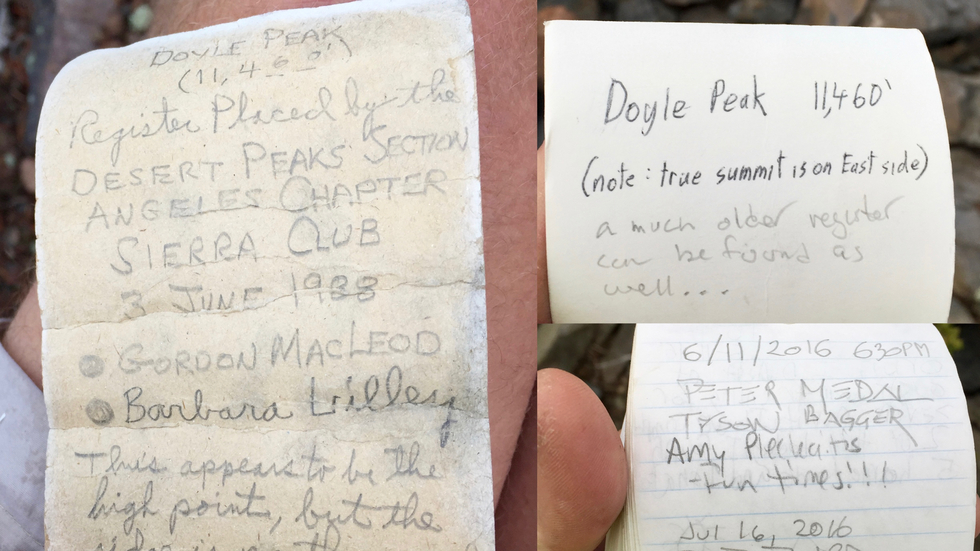 DOYLE PEAK
(11,460')
Register Placed by the
DESERT PEAKS SECTION
ANGELES CHAPTER
SIERRA CLUB
3 JUNE 1988
GORDON MACLEOD
Barbara Lilley
This appears to be the
high point, but the
Doyle Peak 11,460'
(note: true summit is on East side)
a much older register
can be found as
well...
6/11/2016 630PM
PETER MEDAL
TYSON BAGGER
Amy
-Fun times!!!
Jul 16, 2016